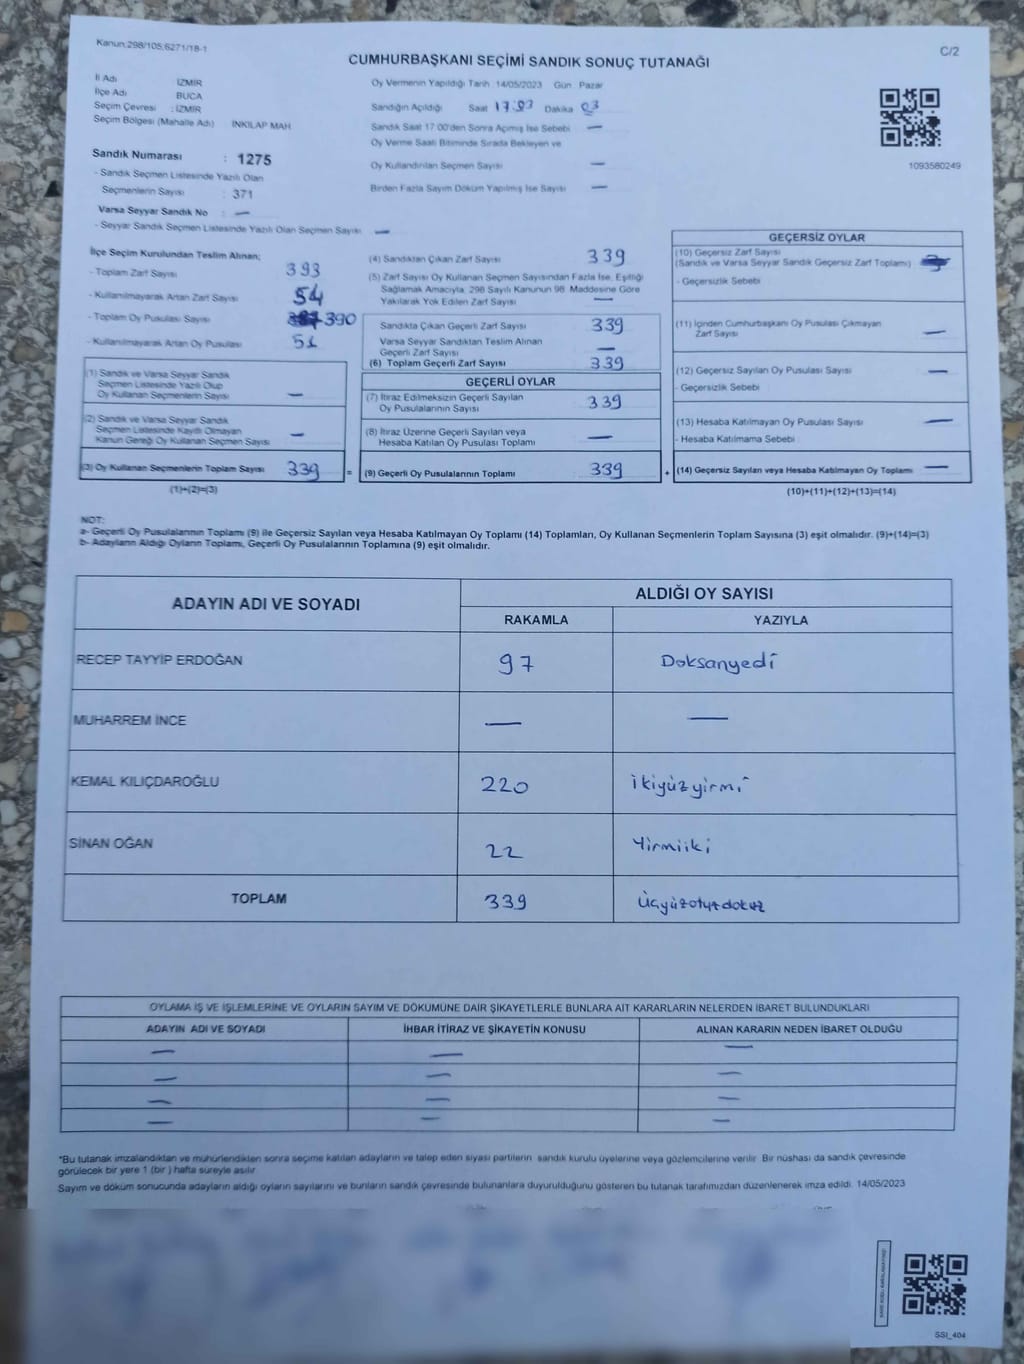 Kanun;298/105;6271/18-1
C/2
CUMHURBAŞKANI SEÇİMİ SANDIK SONUÇ TUTANAĞI
İl Adı İZMİR
İlçe Adı BUCA
Seçim Çevresi : İZMİR
Seçim Bölgesi (Mahalle Adı) İNKILAP MAH
Sandık Numarası : 1275
- Sandık Seçmen Listesinde Yazılı Olan
Seçmenlerin Sayısı : 371
Varsa Seyyar Sandık No : —
- Seyyar Sandık Seçmen Listesinde Yazılı Olan Seçmen Sayısı —
Oy Vermenin Yapıldığı Tarih 14/05/2023 Gün Pazar
Sandığın Açıldığı Saat 17:03 Dakika 03
Sandık Saat 17:00'den Sonra Açımış İse Sebebi —
Oy Verme Saati Bitiminde Sırada Bekleyen ve
Oy Kullandırılan Seçmen Sayısı —
Birden Fazla Sayım Döküm Yapılmış İse Sayısı —
1093580249
İlçe Seçim Kurulundan Teslim Alınan;
- Toplam Zarf Sayısı 393
- Kullanılmayarak Artan Zarf Sayısı 54
- Toplam Oy Pusulası Sayısı 390
- Kullanılmayarak Artan Oy Pusulası 51
(1) Sandık ve Varsa Seyyar Sandık
Seçmen Listesinde Yazılı Olup
Oy Kullanan Seçmenlerin Sayısı —
(2) Sandık ve Varsa Seyyar Sandık
Seçmen Listesinde Kayıtlı Olmayan
Kanun Gereği Oy Kullanan Seçmen Sayısı —
(3) Oy Kullanan Seçmenlerin Toplam Sayısı 339 =
(1)+(2)=(3)
(4) Sandıktan Çıkan Zarf Sayısı 339
(5) Zarf Sayısı Oy Kullanan Seçmen Sayısından Fazla İse, Eşitliği
Sağlamak Amacıyla, 298 Sayılı Kanunun 98. Maddesine Göre
Yakılarak Yok Edilen Zarf Sayısı —
Sandıkta Çıkan Geçerli Zarf Sayısı 339
Varsa Seyyar Sandıktan Teslim Alınan
Geçerli Zarf Sayısı —
(6) Toplam Geçerli Zarf Sayısı 339
GEÇERLİ OYLAR
(7) İtiraz Edilmeksizin Geçerli Sayılan
Oy Pusulalarının Sayısı 339
(8) İtiraz Üzerine Geçerli Sayılan veya
Hesaba Katılan Oy Pusulası Toplamı —
(9) Geçerli Oy Pusulalarının Toplamı 339 +
GEÇERSİZ OYLAR
(10) Geçersiz Zarf Sayısı
(Sandık ve Varsa Seyyar Sandık Geçersiz Zarf Toplamı)
- Geçersizlik Sebebi
(11) İçinden Cumhurbaşkanı Oy Pusulası Çıkmayan
Zarf Sayısı —
(12) Geçersiz Sayılan Oy Pusulası Sayısı —
- Geçersizlik Sebebi
(13) Hesaba Katılmayan Oy Pusulası Sayısı —
- Hesaba Katılmama Sebebi
(14) Geçersiz Sayılan veya Hesaba Katılmayan Oy Toplamı —
(10)+(11)+(12)+(13)=(14)
NOT:
a- Geçerli Oy Pusulalarının Toplamı (9) ile Geçersiz Sayılan veya Hesaba Katılmayan Oy Toplamı (14) Toplamları, Oy Kullanan Seçmenlerin Toplam Sayısına (3) eşit olmalıdır. (9)+(14)=(3)
b- Adayların Aldığı Oyların Toplamı, Geçerli Oy Pusulalarının Toplamına (9) eşit olmalıdır.
ADAYIN ADI VE SOYADI ALDIĞI OY SAYISI
RAKAMLA YAZIYLA
RECEP TAYYİP ERDOĞAN 97 Doksanyedi
MUHARREM İNCE — —
KEMAL KILIÇDAROĞLU 220 ikiyüzyirmi
SİNAN OĞAN 22 Yirmiiki
TOPLAM 339 Üçyüzotuzdokuz
OYLAMA İŞ VE İŞLEMLERİNE VE OYLARIN SAYIM VE DÖKÜMÜNE DAİR ŞİKAYETLERLE BUNLARA AİT KARARLARIN NELERDEN İBARET BULUNDUKLARI
ADAYIN ADI VE SOYADI İHBAR İTİRAZ VE ŞİKAYETİN KONUSU ALINAN KARARIN NEDEN İBARET OLDUĞU
— — —
— — —
— — —
— — —
*Bu tutanak imzalandıktan ve mühürlendikten sonra seçime katılan adayların ve talep eden siyasi partilerin sandık kurulu üyelerine veya gözlemcilerine verilir. Bir nüshası da sandık çevresinde
görülecek bir yere 1 (bir ) hafta süreyle asılır.
Sayım ve döküm sonucunda adayların aldığı oyların sayılarını ve bunların sandık çevresinde bulunanlara duyurulduğunu gösteren bu tutanak tarafımızdan düzenlenerek imza edildi. 14/05/2023
SSI_404